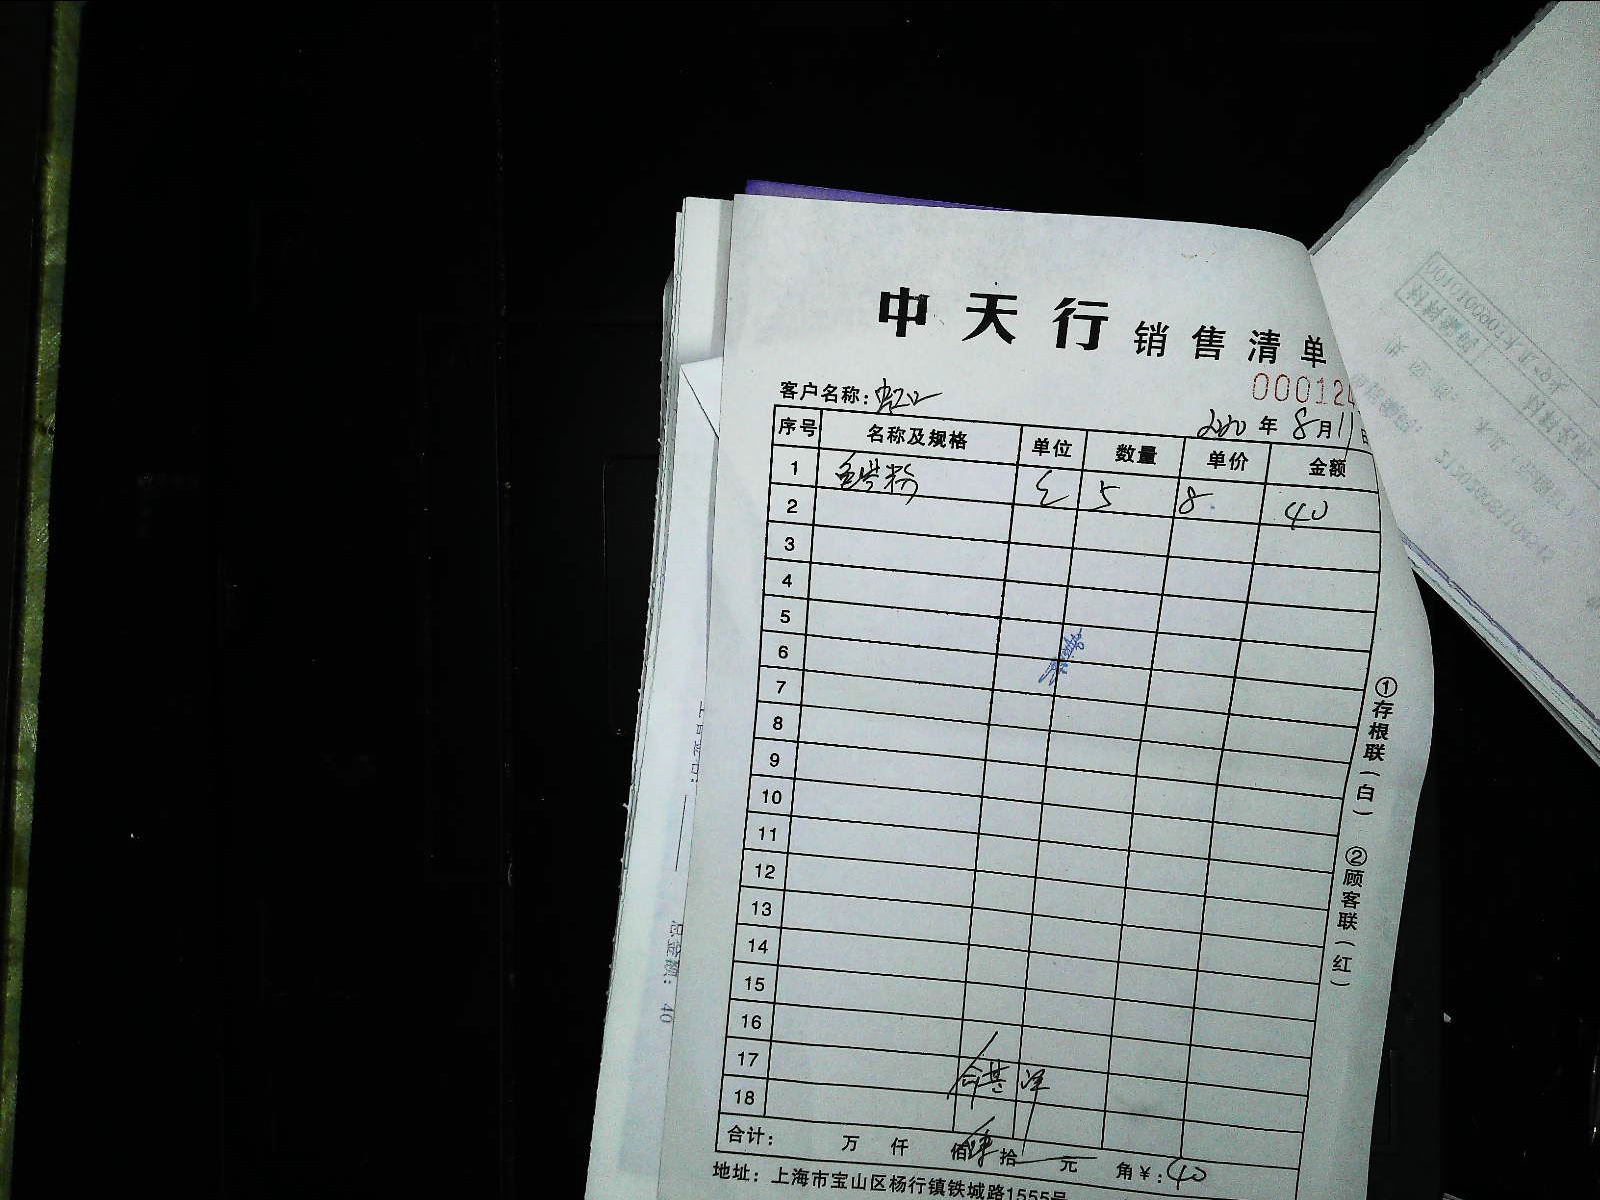 中天行 销售清单
000124
客户名称: 虹口
2020年8月11日
序号 名称及规格 单位 数量 单价 金额
1 包 5 8 40
2
3
4
5
6
7
8
9
10
11
12
13
14
15
16
17
18
合计: 万 仟 佰 肆拾 元 角 ¥: 40
地址: 上海市宝山区杨行镇铁城路1555号
①存根联(白) ②顾客联(红)
总金额: 40